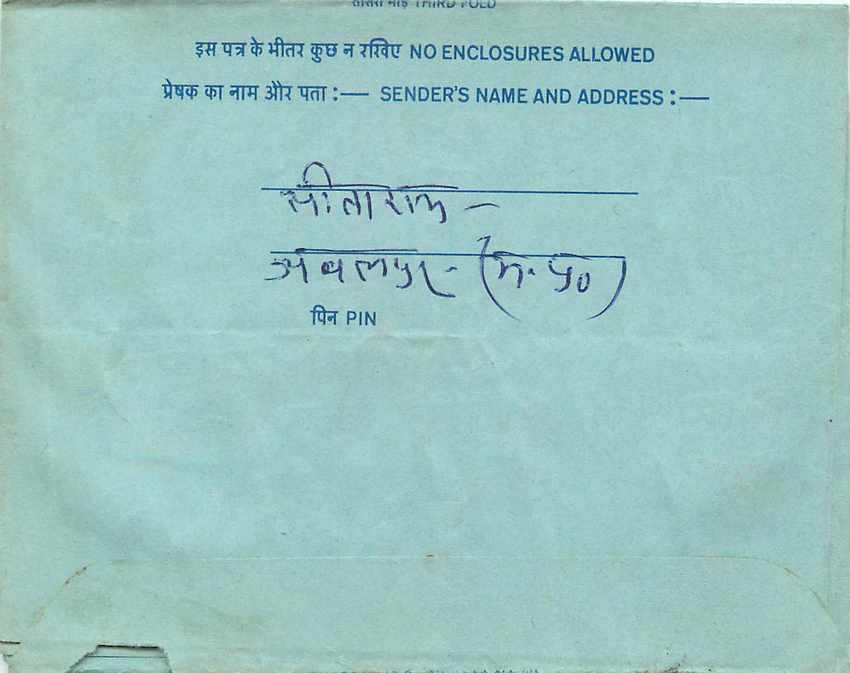 तीसरा मोड़ THIRD FOLD
इस पत्र के भीतर कुछ न रखिए NO ENCLOSURES ALLOWED
प्रेषक का नाम और पता :— SENDER'S NAME AND ADDRESS :—
सीताराम –
जबलपुर - (म. प्र०)
पिन PIN